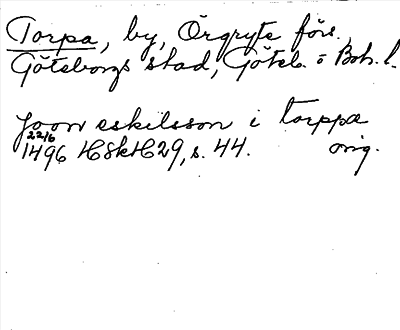 Torpa, by, Örgryte förs.,
Göteborgs stad, Göteb. o Boh. l.
Joon eskilsson i torppa
22/6
1496 HSkH 29, s. 44. orig.